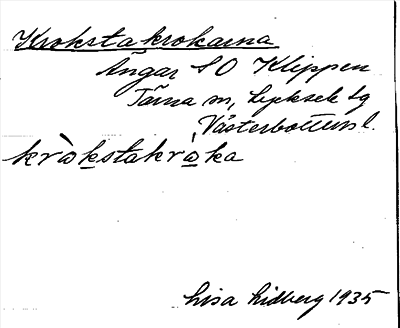 Krokstakrokarna
Ängar S O Klippen
Tärna sn, Lycksele lg
Västerbottens l.
kròkstakròka
Lisa Lidberg 1935